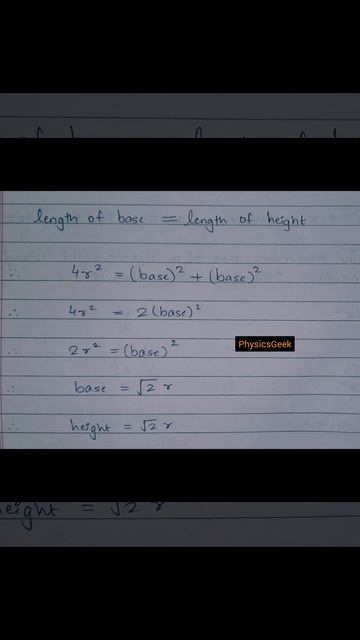 length of base = length of height
∴ 4r² = (base)² + (base)²
∴ 4r² = 2(base)²
∴ 2r² = (base)²
PhysicsGeek
∴ base = √2 r
∴ height = √2 r
eight = √2 r